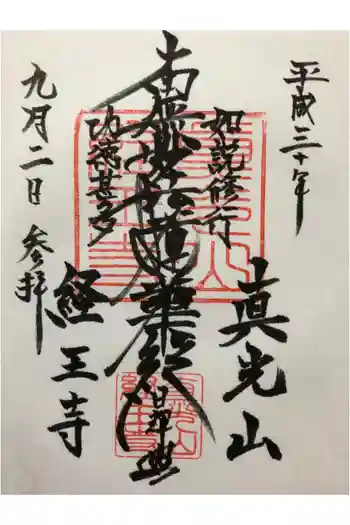 平成三十年
如説修行
真光山
南無妙法蓮華経
功徳甚多
経王寺
九月二日 参拝